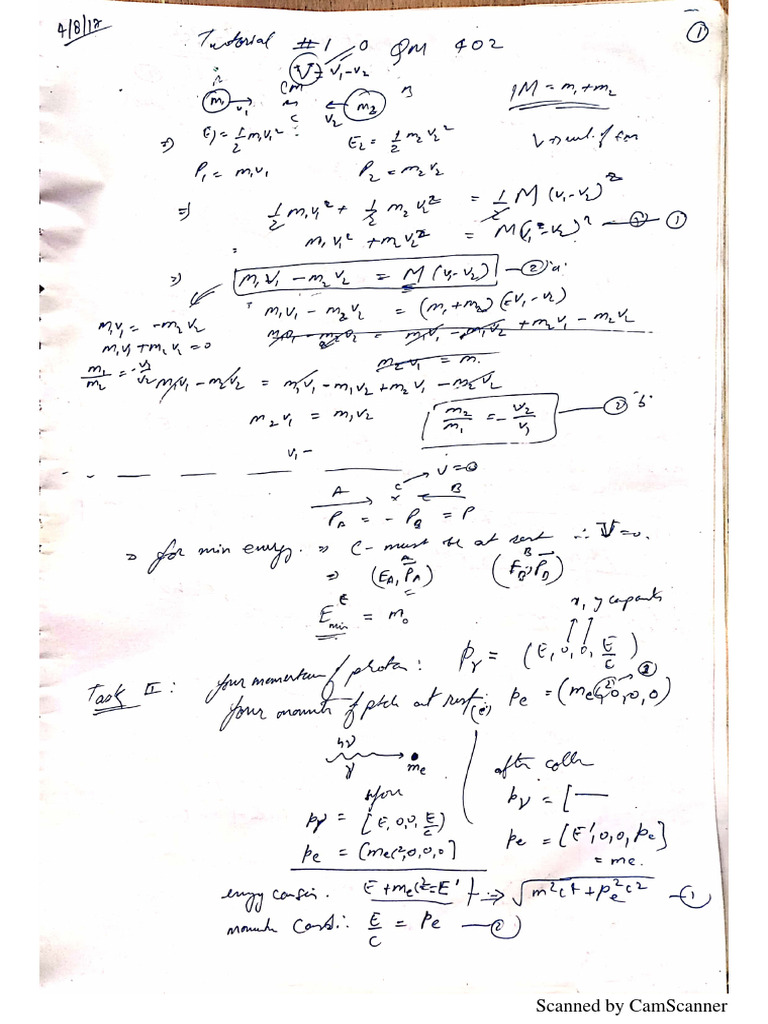 4/8/17
①
Tutorial #1 QM 402
V = v₁-v₂
A CM B
m₁ → v₁ C ← m₂ v₂
M = m₁+m₂
⇒ E₁ = ½ m₁v₁² E₂ = ½ m₂v₂²
P₁ = m₁v₁ P₂ = m₂v₂
⇒ ½ m₁v₁² + ½ m₂v₂² = ½ M (v₁-v₂)²
m₁v₁² + m₂v₂² = M(v₁-v₂)² — ①
⇒ m₁v₁ - m₂v₂ = M (v₁-v₂) — ② "a"
m₁v₁ - m₂v₂ = (m₁+m₂) (v₁-v₂)
m₁v₁ = -m₂v₂
m₁v₁ + m₂v₂ = 0
m₁v₁ - m₂v₂ = m₁v₁ - m₁v₂ + m₂v₁ - m₂v₂
m₂v₁ = m.
m₁/m₂ = -v₂/v₁
m₁v₁ - m₂v₂ = m₁v₁ - m₁v₂ + m₂v₁ - m₂v₂
m₂v₁ = m₁v₂
m₂/m₁ = - v₂/v₁ — ② "b"
v₁ -
V=0
A C B
P_A = - P_B = P
⇒ for min energy. ⇒ C - must be at rest ∴ V=0.
⇒ (E_A, P_A) (E_B, P_B)
E_min = m₀
x, y
Task II: four momentum of photon: p_γ = (E, 0, 0, E/c)
four at rest: (e) p_e = (m_e c², 0, 0, 0)
hν
γ m_e
after
p_γ = [ —
p_γ = [E, 0, 0, E/c)
p_e = [E', 0, 0, p_e]
p_e = (m_e c², 0, 0, 0]
= m_e.
energy E + m_e c² = E' ⇒ √(m²c⁴ + p_e²c²) — ①
E/c = p_e — ②
Scanned by CamScanner